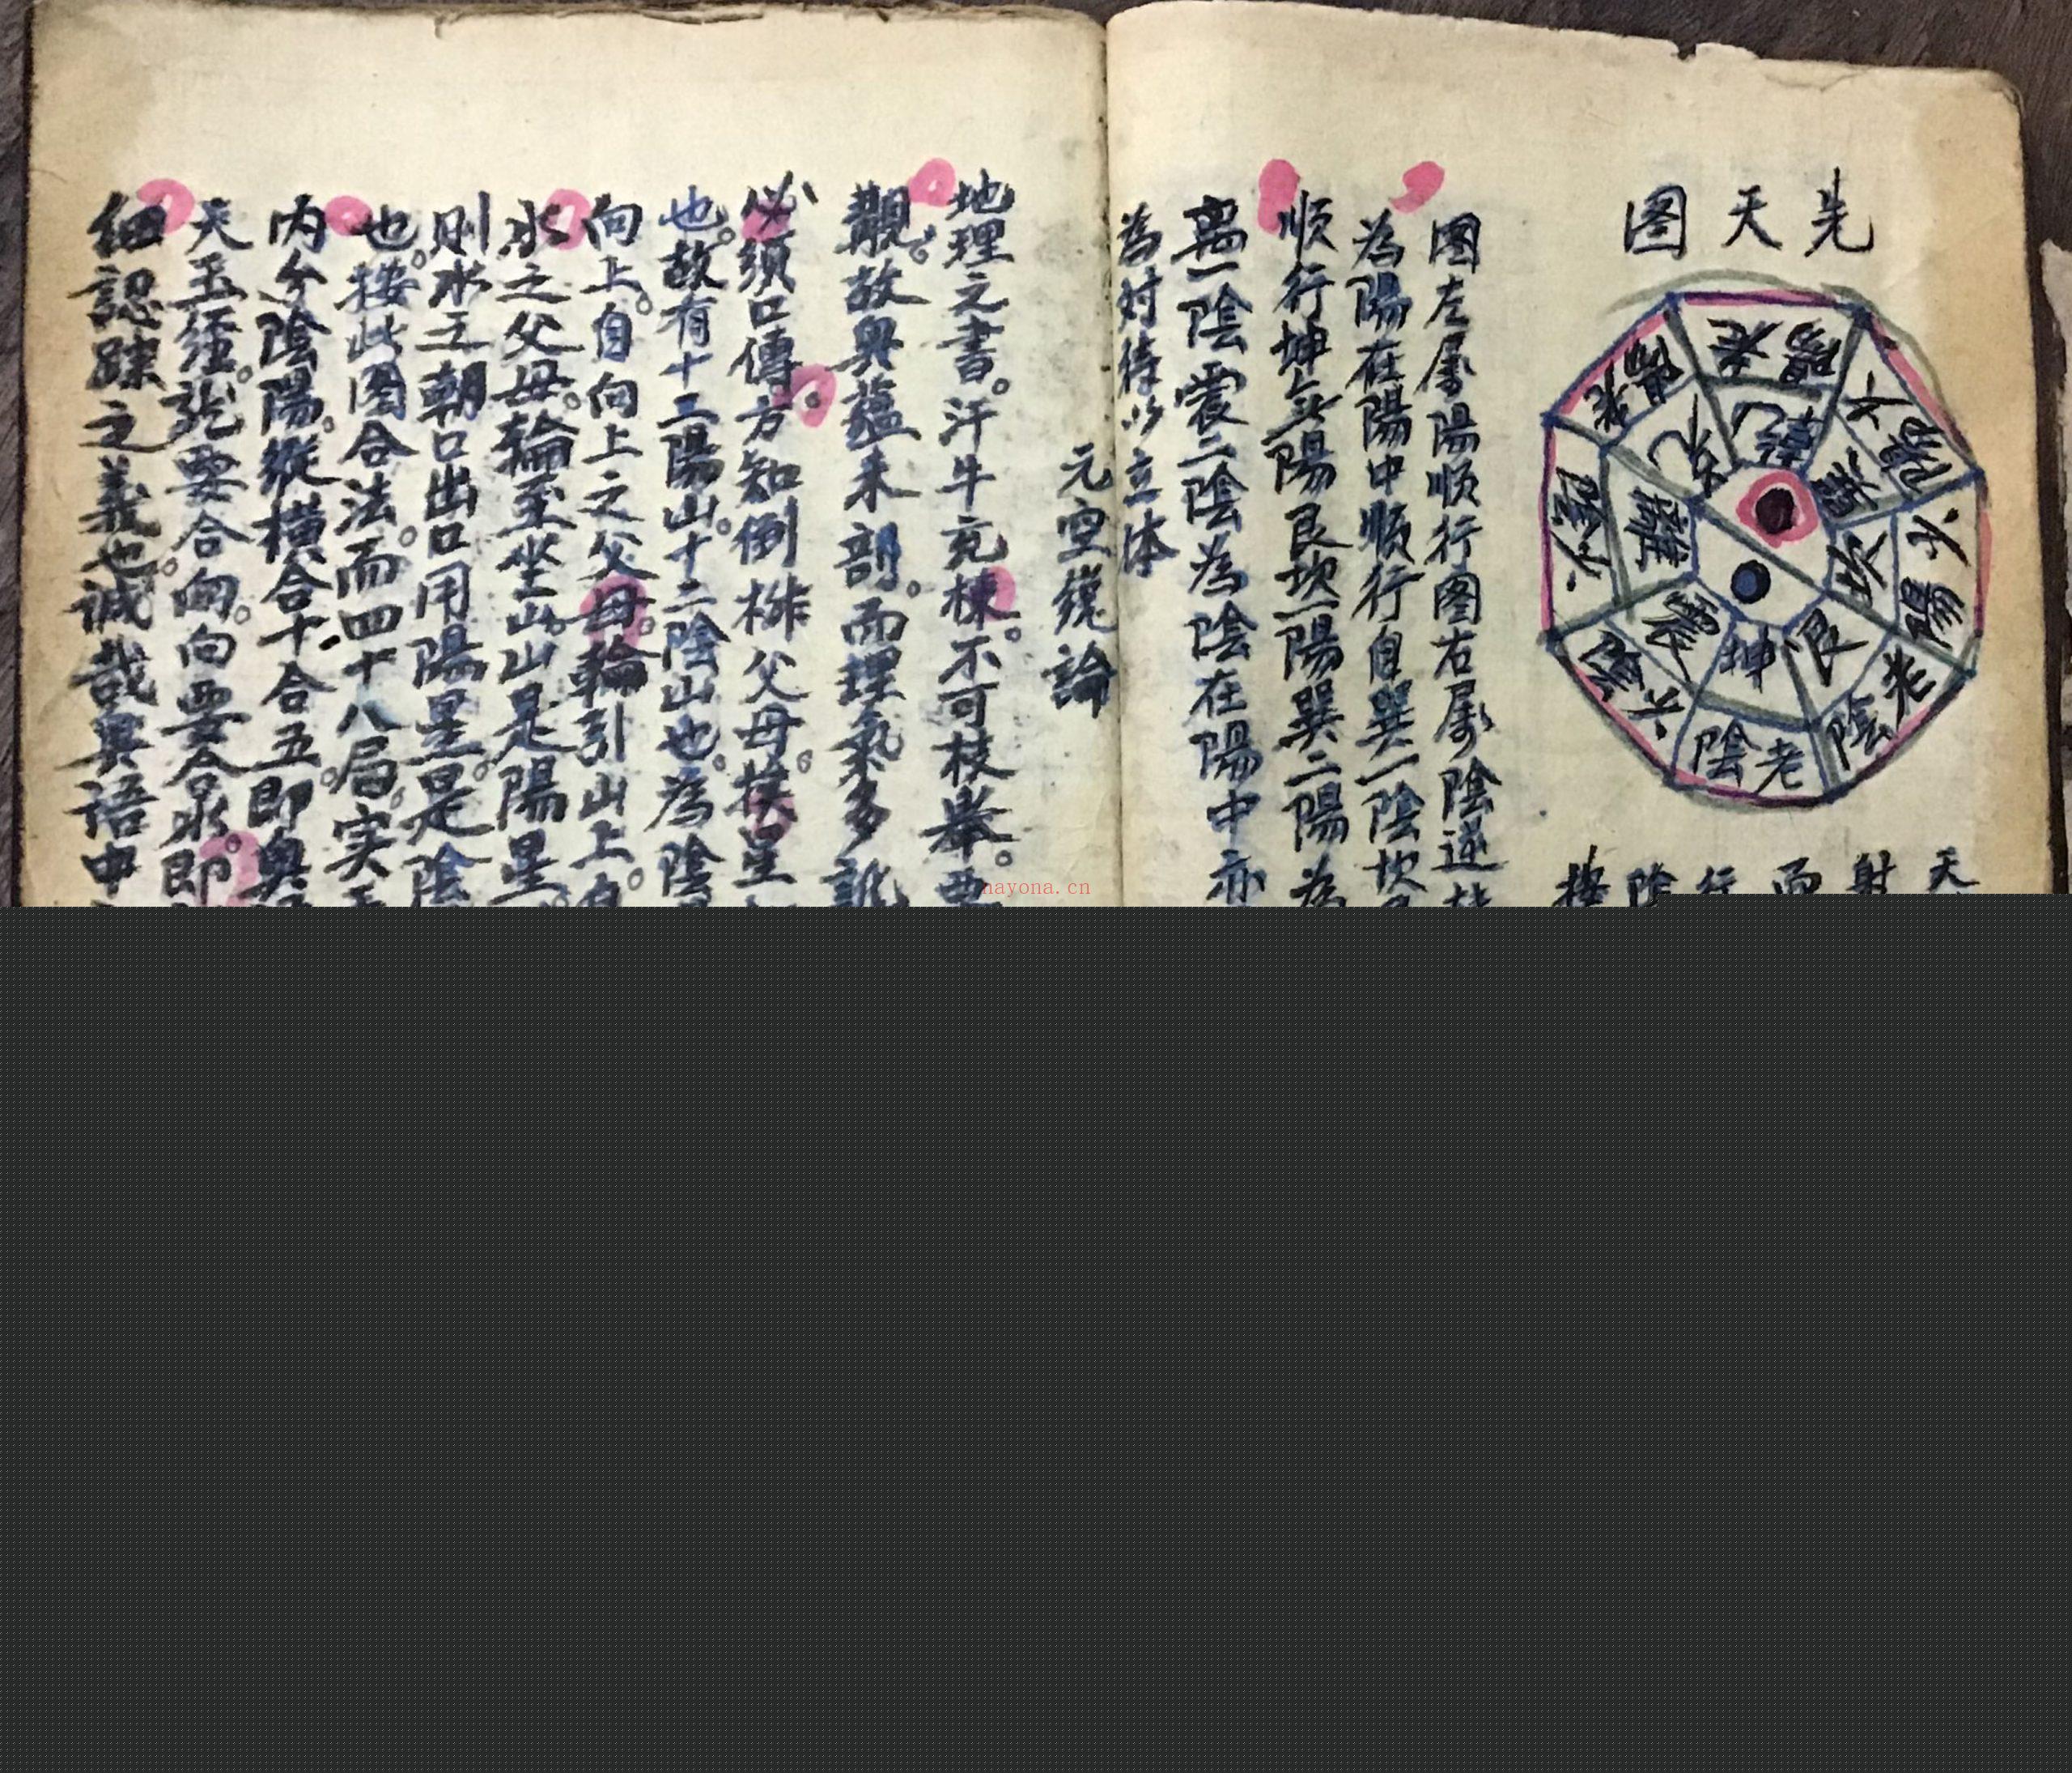 先天图
老陽
老陽
少陰
少陰
老陰
老陰
少陽
少陽
乾
兌
離
震
坤
艮
坎
巽
天
射
而
行
陰
按
图左屬陽顺行图右屬陰逆
為陽在陽中顺行自巽一陰坎
顺行坤無陽艮坎一陽巽二陽為
离一陰震二陰為陰在陽中亦
為対待以立体
元空總論
地理之書。汗牛充棟。不可枝舉。
觀。故奥蘊未剖。而理氣多訛
必須口傳。方知倒排父母。挨星
也。故有十二陽山。十二陰山也。為陰
向上。自向上之父母。輪引山上。
水之父母。輪至坐山。山是陽星。
则水之朝口出口用陽星。是陰
也。按此图合法。而四十八局。实
内分陰陽。縱橫合十合五。即奥
天玉經。龙要合向。向要合水。即
细認踪之義也。诚哉异语中
nayona.cn